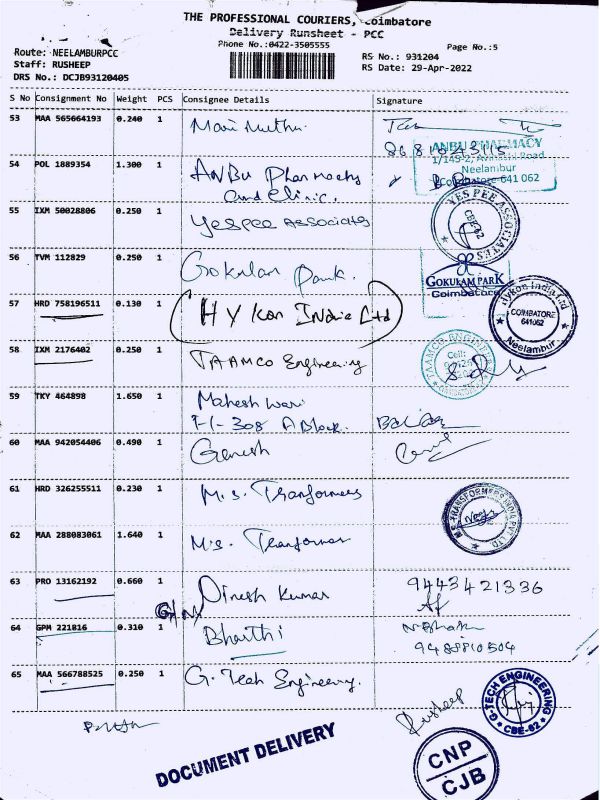 THE PROFESSIONAL COURIERS, Coimbatore
Delivery Runsheet - PCC
Phone No.:0422-3505555
Page No.:5
Route: NEELAMBURPCC
Staff: RUSHEEP
DRS No.: DCJB93120405
RS No.: 931204
RS Date: 29-Apr-2022
S No Consignment No Weight PCS Consignee Details Signature
53 MAA 565664193 0.240 1 Mari Muthu
54 POL 1889354 1.300 1 ANBu Pharmacy
and Clinic.
ANBU PHARMACY
1/149-2, Road
Neelambur
Coimbatore-641 062
55 IXM 50028806 0.250 1 Yespee Associates
YES PEE ASSOCIATES
CBE-62
56 TVM 112829 0.250 1 Gokulam Park.
GOKULAM PARK
Coimbatore
57 HRD 758196511 0.130 1 HYKon India Ltd
Hykon India Ltd
COIMBATORE
641062
Neelambur
58 IXM 2176402 0.250 1 TAAMCO Engineering
TAAMCO ENGINEERING
Cell:
59 TKY 464898 1.650 1 Maheshwari
7-1-308 A Block.
60 MAA 942054406 0.490 1 Ganesh
61 HRD 326255511 0.230 1 M.S. Transformers
M.S. TRANSFORMERS INDIA PVT LTD
62 MAA 288083061 1.640 1 M.S. Transformer
63 PRO 13162192 0.660 1 Dinesh Kumar 9443421336
64 GPM 221816 0.310 1 Bharthi
9488810504
65 MAA 566788525 0.250 1 G. Tech Engineering.
G-TECH ENGINEERING
CBE-62
Rusheep
DOCUMENT DELIVERY
CNP
CJB